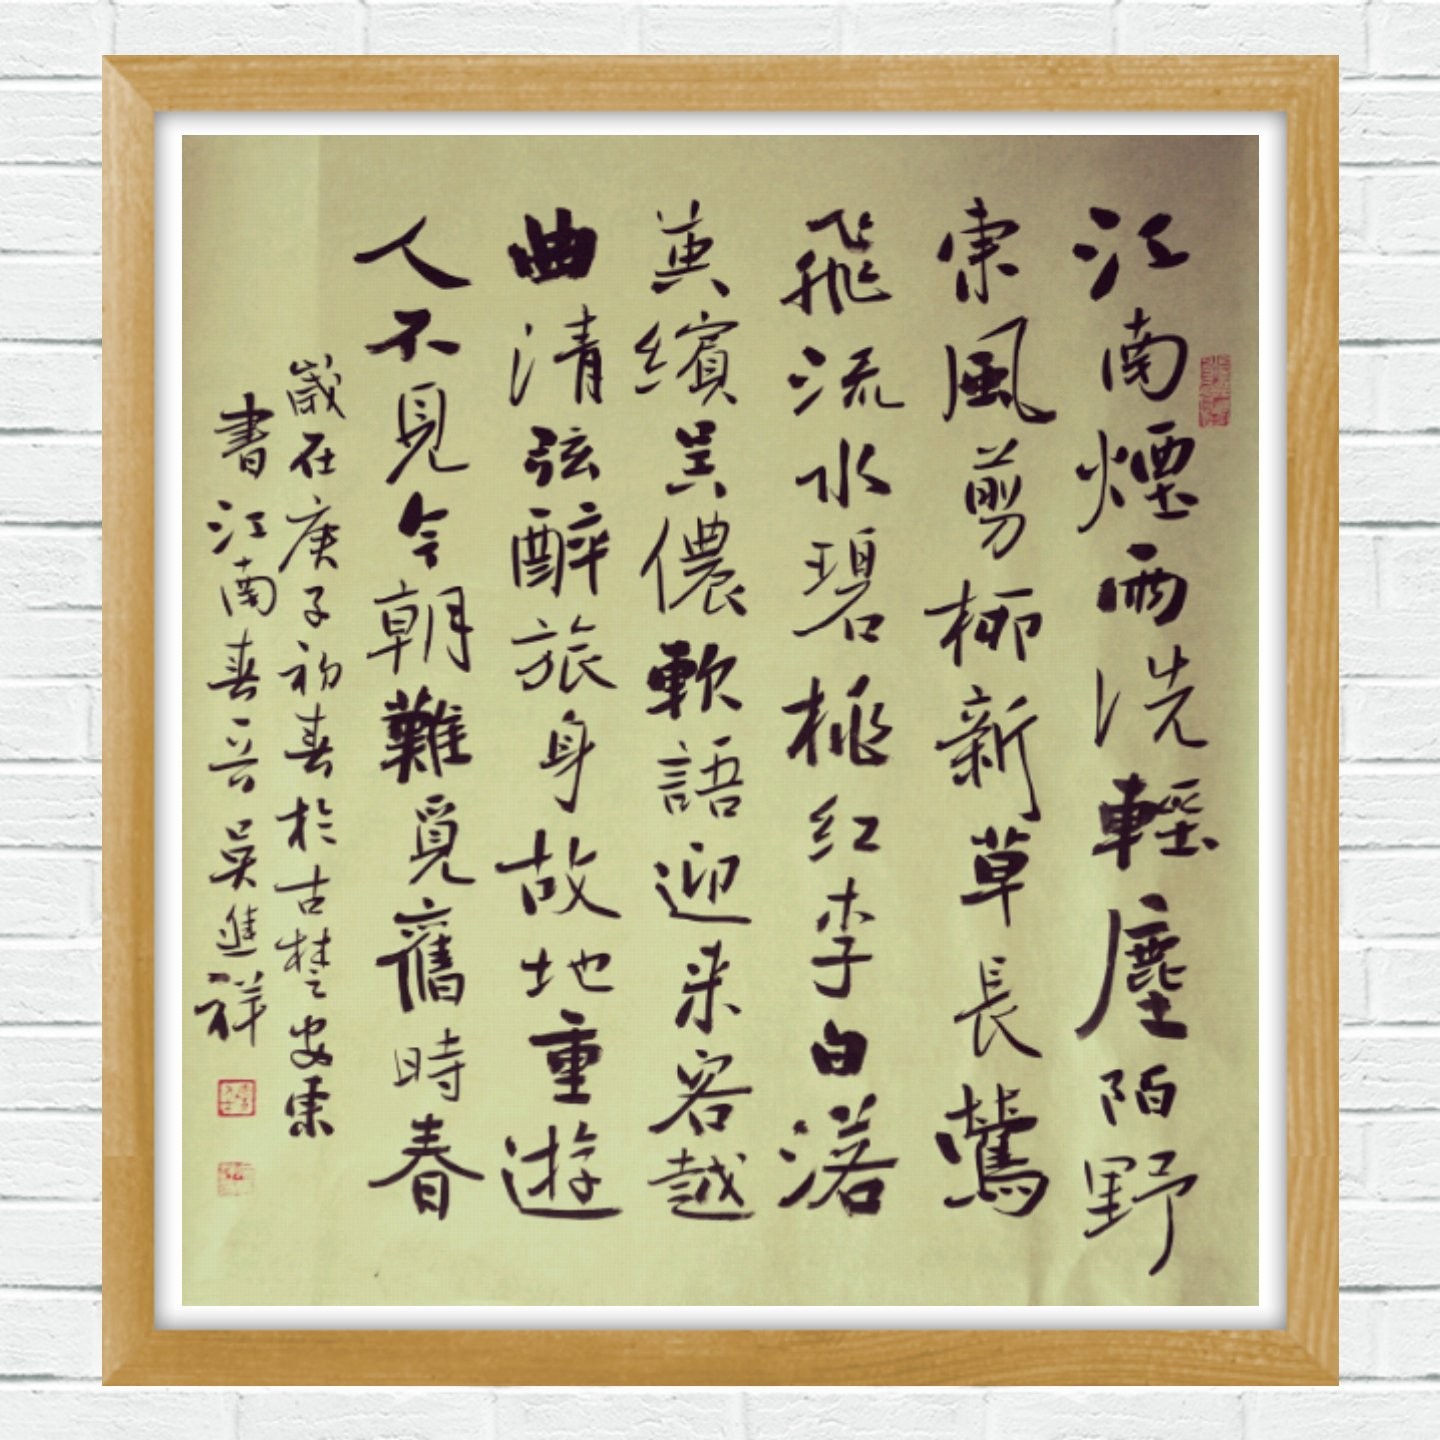 江南煙雨洗輕塵陌野
東風剪柳新草長鶯
飛流水碧桃紅李白落
英繽吳儂軟語迎来客越
曲清弦醉旅身故地重遊
人不見今朝難覓舊時春
歲在庚子初春於古楚安東
書江南春吳進祥